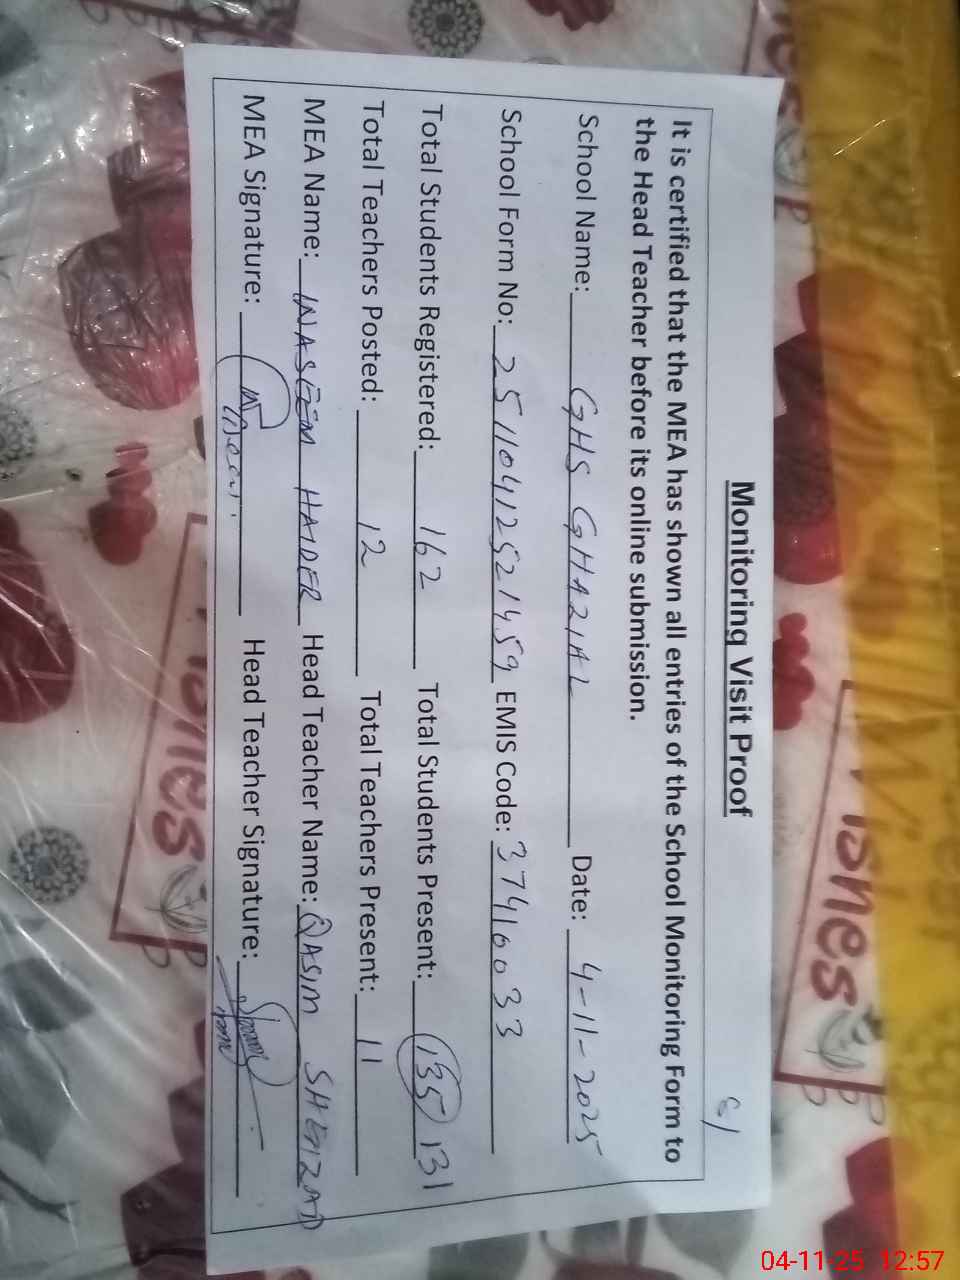 8/
Monitoring Visit Proof
It is certified that the MEA has shown all entries of the School Monitoring Form to
the Head Teacher before its online submission.
School Name: GHS GHAZIAL Date: 4-11-2025
School Form No: 25110412521459 EMIS Code: 37410033
Total Students Registered: 162 Total Students Present: 135 131
Total Teachers Posted: 12 Total Teachers Present: 11
MEA Name: WASEEM HAIDER Head Teacher Name: QASIM SHEHZAD
MEA Signature: Head Teacher Signature:
ishes
ishes
04-11-25 12:57